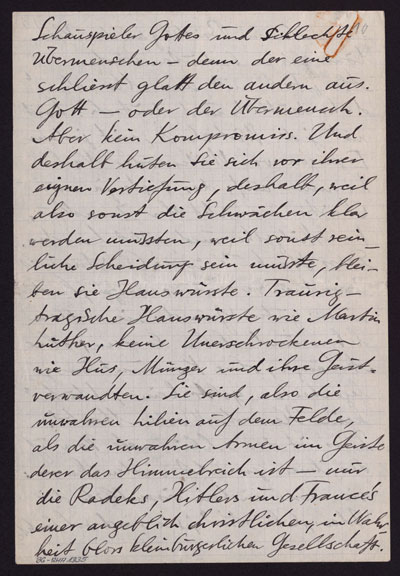 Schauspieler Gottes und Schlechte
Übermenschen – denn der eine
schliesst glatt den andern aus.
Gott – oder der Übermensch.
Aber kein Kompromiss. Und
deshalb hüten sie sich vor ihrer
eignen Vertiefung, deshalb, weil
also sonst die Schwächen klar
werden müssten, weil sonst rein-
liche Scheidung sein müsste, blei-
ben sie Hanswürste. Traurig-
tragische Hanswürste wie Martin
Luther, keine Unerschrockenen
wie Hus, Münzer und ihre Geist-
verwandten. Sie sind, also die
unwahren Lilien auf dem Felde,
als die unwahren Armen im Geiste
derer das Himmelreich ist – nur
die Radeks, Hitlers und
einer angeblich christlichen, in Wahr-
heit bloss kleinbürgerlichen Gesellschaft.